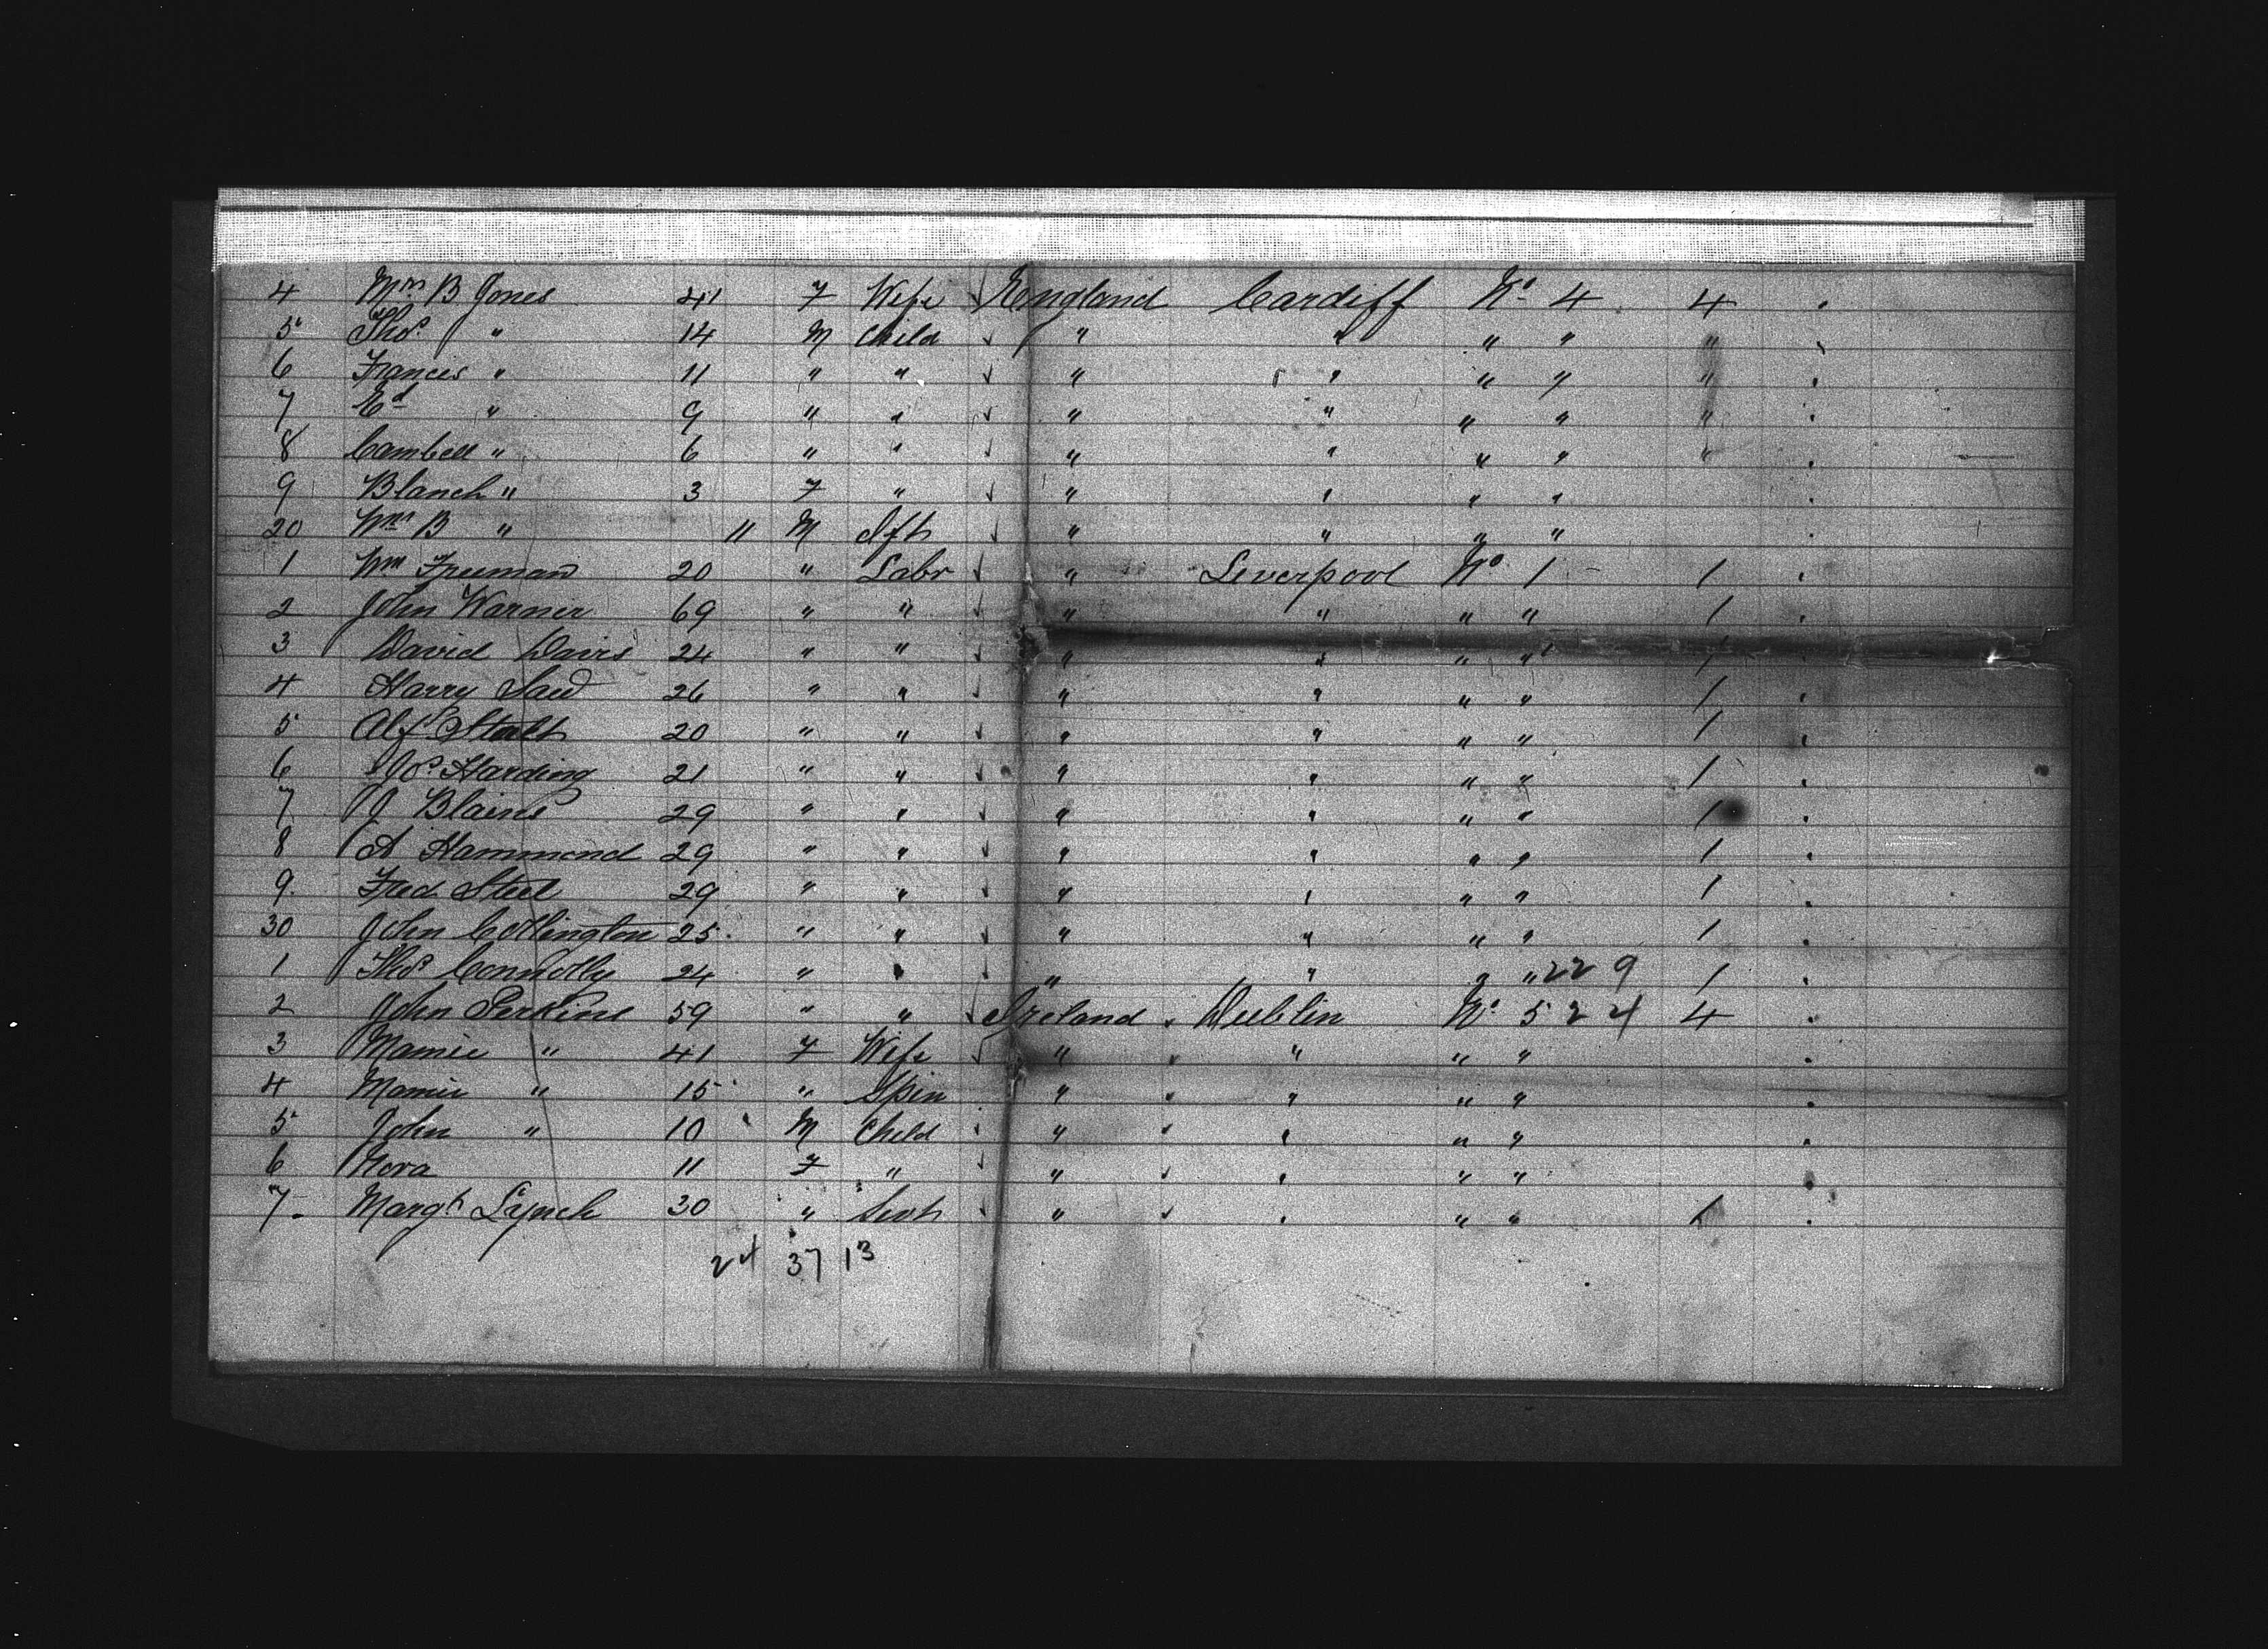 4 Mrs B Jones 41 F Wife England Cardiff No 4 4
5 Thos " 14 M Child " " " " "
6 Francis " 11 " " " " " " "
7 Ed " 9 " " " " " " "
8 Cambell " 6 " " " " " " "
9 Blanch " 3 F " " " " "
20 Wm B " 11 M Ift " " " "
1 Wm Freeman 20 " Labr " Liverpool No 1 - 1
2 John Warner 69 " " " " " " 1
3 David Davis 24 " " " " " " 1
4 Harry 26 " " " " " " 1
5 Alf 20 " " " " " " 1
6 Jos Harding 21 " " " " " " 1
7 J Blaine 29 " " " " " " 1
8 A Hammond 29 " " " " " " 1
9 Fred Steel 29 " " " " " " 1
30 John Collington 25 " " " " " " 1
1 Thos Connolly 24 " " " " " " 22 9 1
2 John Perkins 59 " " Ireland Dublin No 5 2 4 4
3 Mamie " 41 F Wife " " " "
4 Mamie " 15 " Spin " " " "
5 John " 10 M Child " " " "
6 Nora 11 F " " " " "
7 Margt Lynch 30 " Servt " " " " 1
24 37 13